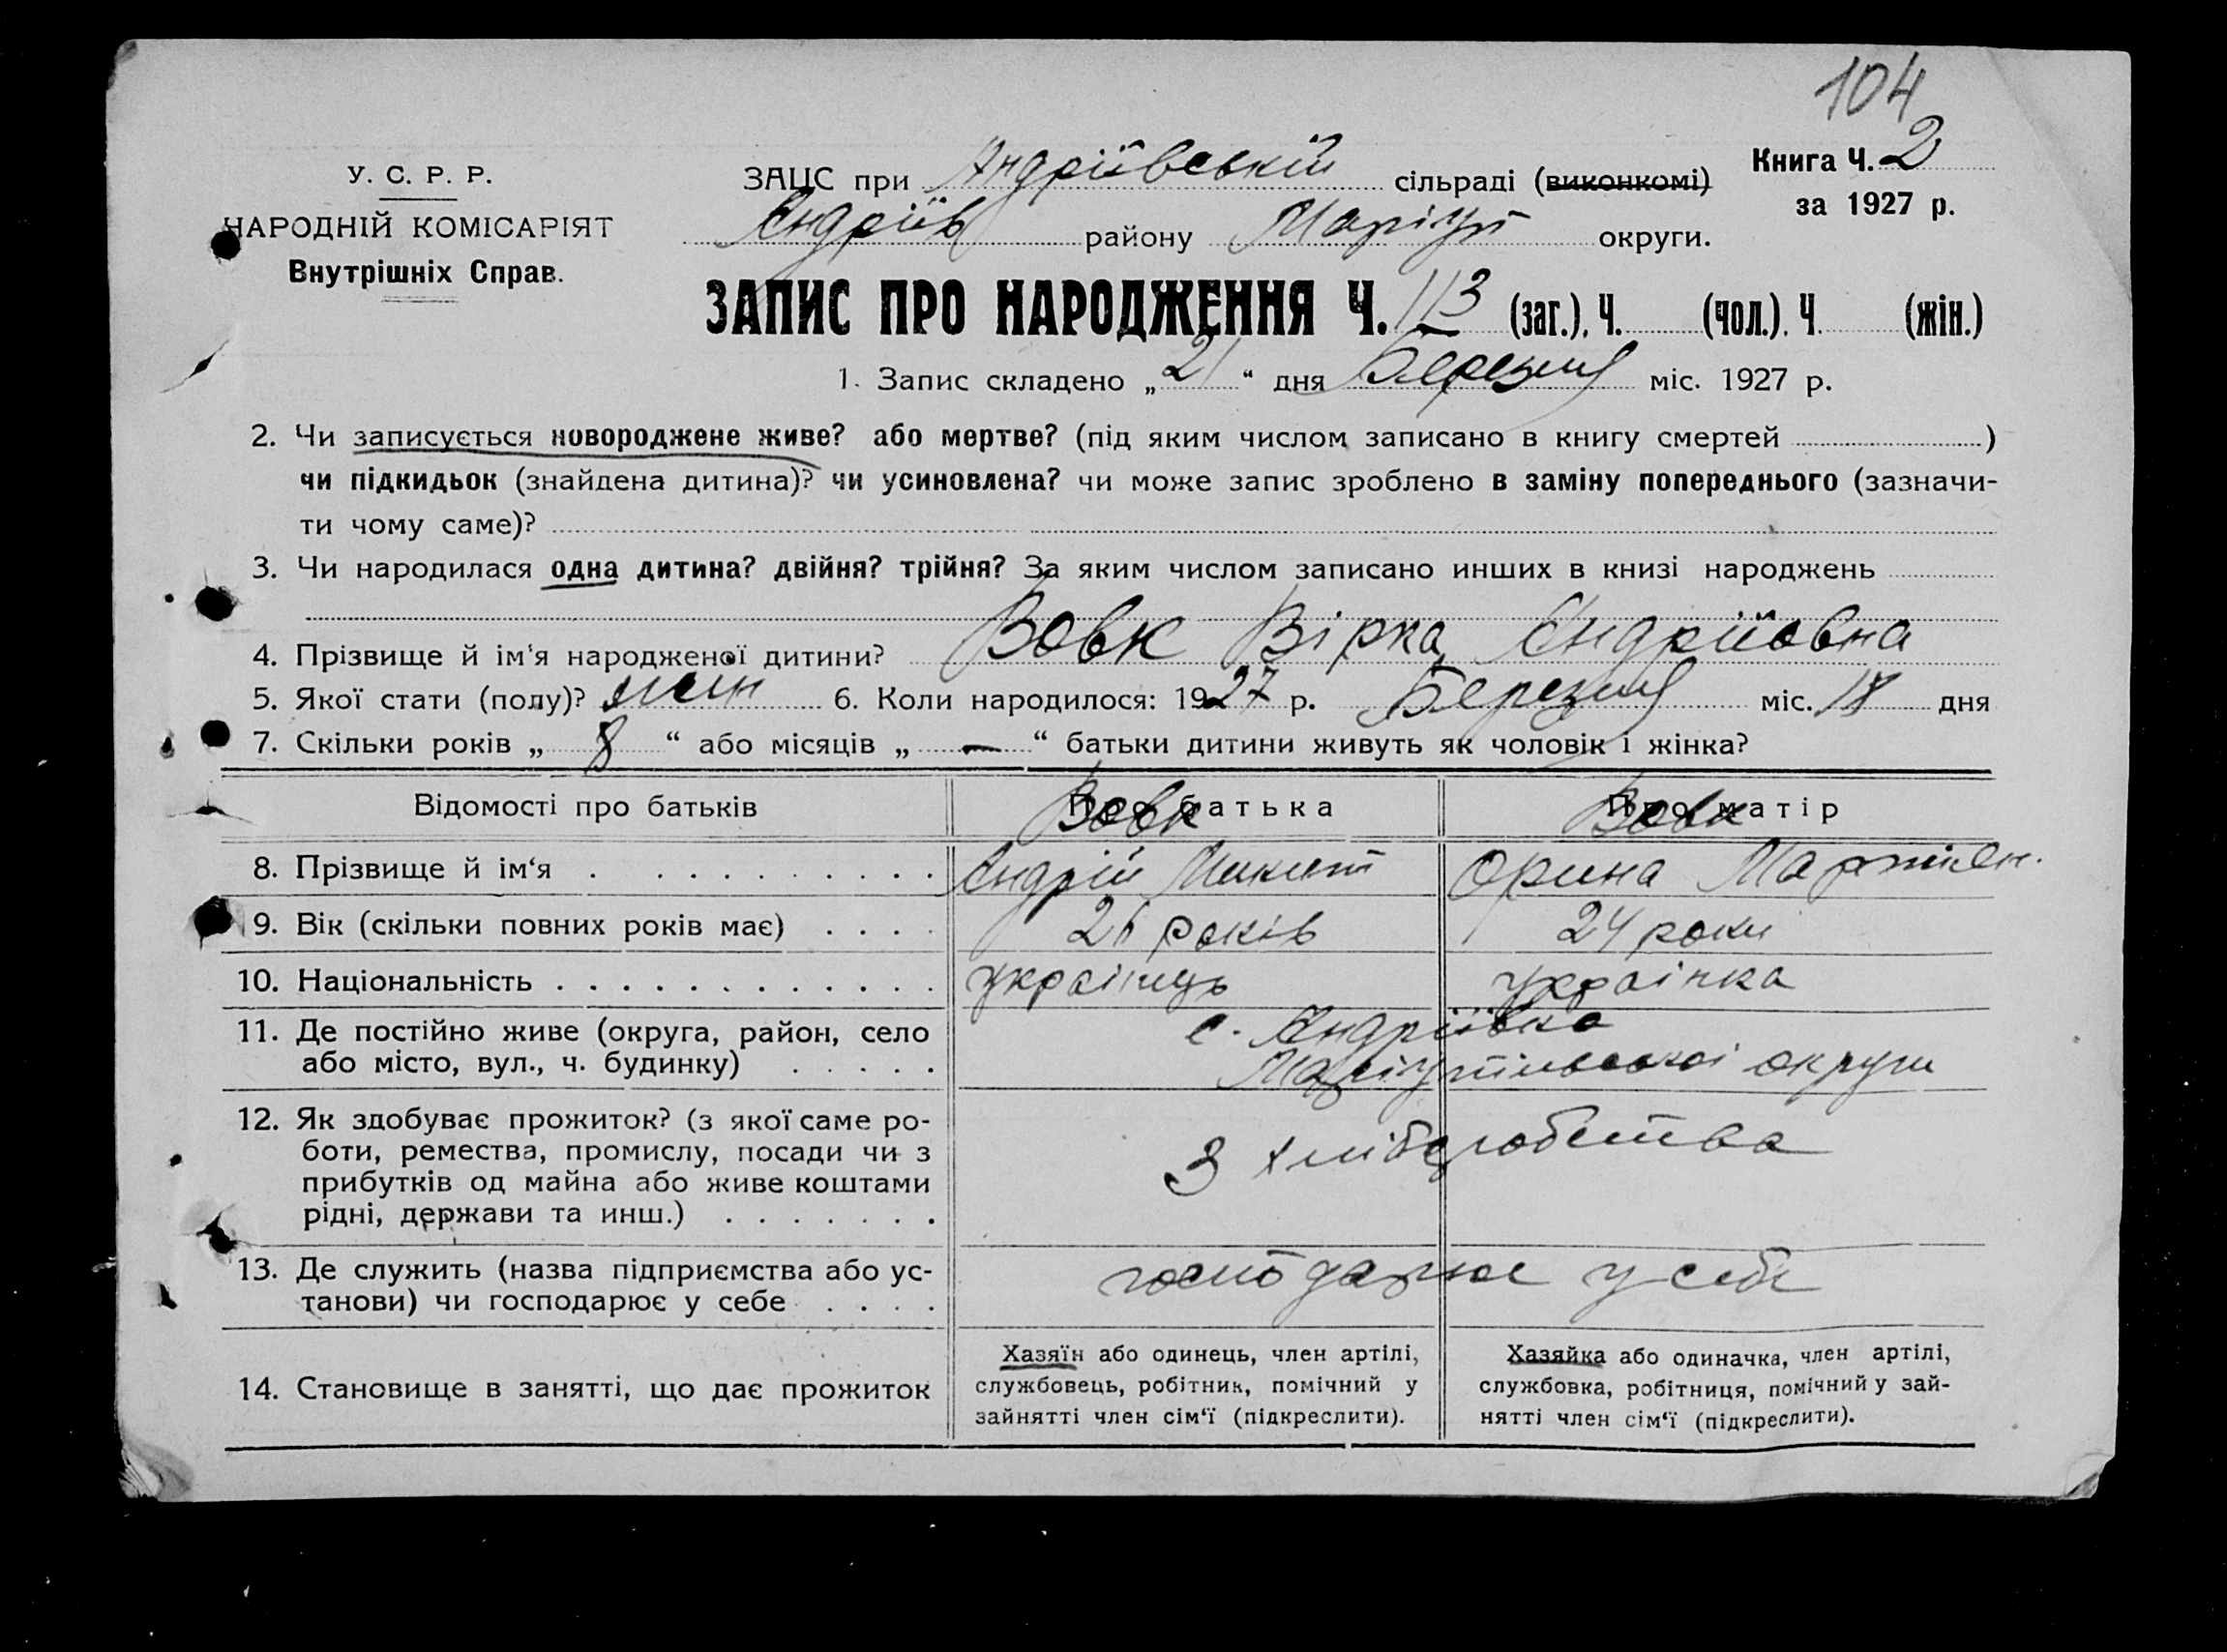 104
У. С. Р. Р.
НАРОДНІЙ КОМІСАРІЯТ
Внутрішніх Справ.
ЗАЦС при Андріївській сільраді (виконкомі)
Книга Ч. 2
Андріїв району Маріуп округи.
за 1927 р.
ЗАПИС ПРО НАРОДЖЕННЯ Ч. 113 (заг.), Ч. (чол.), Ч. (жін.)
1. Запис складено „21“ дня Березня міс. 1927 р.
2. Чи записується новороджене живе? або мертве? (під яким числом записано в книгу смертей )
чи підкидьок (знайдена дитина)? чи усиновлена? чи може запис зроблено в заміну попереднього (зазначи-
ти чому саме)?
3. Чи народилася одна дитина? двійня? трійня? За яким числом записано инших в книзі народжень
4. Прізвище й ім'я народженої дитини? Вовк Вірка Андріївна
5. Якої стати (полу)? жін 6. Коли народилося: 1927 р. Березня міс. 18 дня
7. Скільки років „ 8 “ або місяців „ — “ батьки дитини живуть як чоловік і жінка?
Відомості про батьків Про батька Про матір
Вовк Вовк
8. Прізвище й ім‘я Андрій Микит Орина Мартиян.
9. Вік (скільки повних років має) 26 років 24 роки
10. Національність українець українка
11. Де постійно живе (округа, район, село с. Андріївка
або місто, вул., ч. будинку) Маріупільської округи
12. Як здобуває прожиток? (з якої саме ро-
боти, ремества, промислу, посади чи з З хліборобства
прибутків од майна або живе коштами
рідні, держави та инш.)
13. Де служить (назва підприємства або ус- господарює у себе
танови) чи господарює у себе
14. Становище в занятті, що дає прожиток
Хазяїн або одинець, член артілі,
службовець, робітник, помічний у
зайнятті член сім‘ї (підкреслити).
Хазяйка або одиначка, член артілі,
службовка, робітниця, помічний у зай-
нятті член сім‘ї (підкреслити).